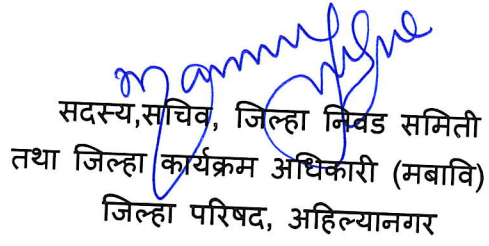 सदस्य,सचिव, जिल्हा निवड समिती
तथा जिल्हा कार्यक्रम अधिकारी (मबावि)
जिल्हा परिषद, अहिल्यानगर